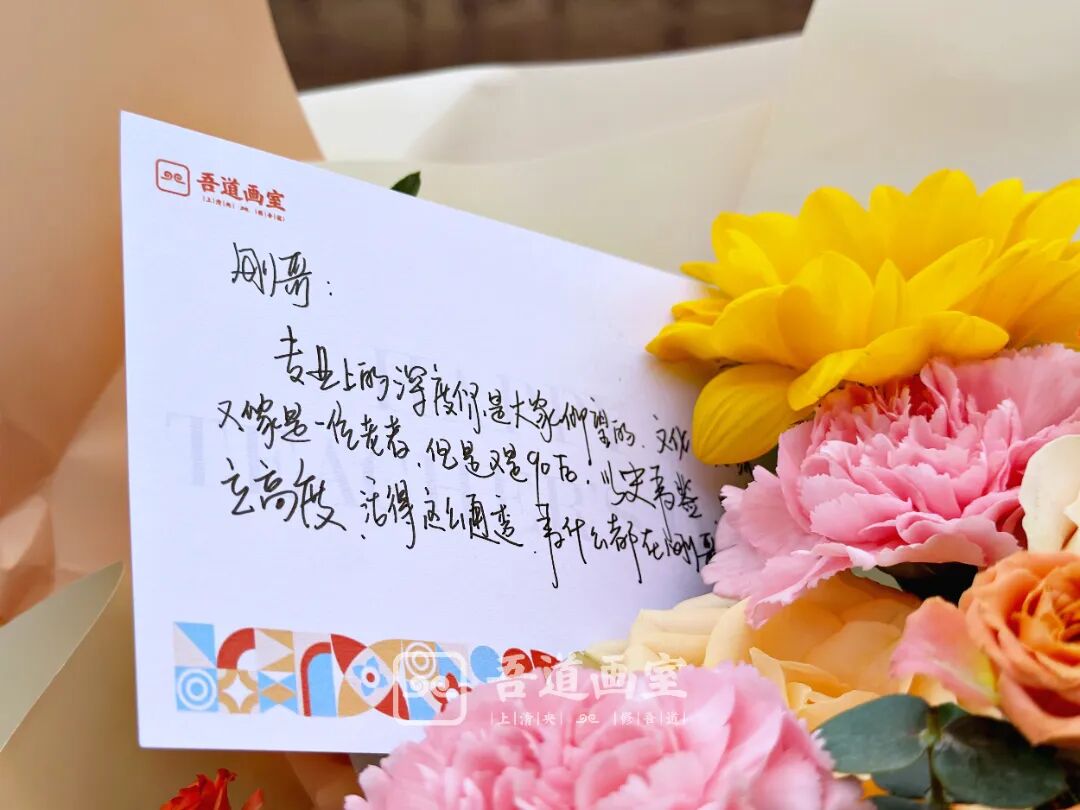 吾道画室
上清央 修吾道
刚哥:
专业上的深度你是大家仰望的、文化
又像是一位老者,但是又是90后,
立高度、活得这么通透、为什么都在刚哥
吾道画室
上清央 修吾道